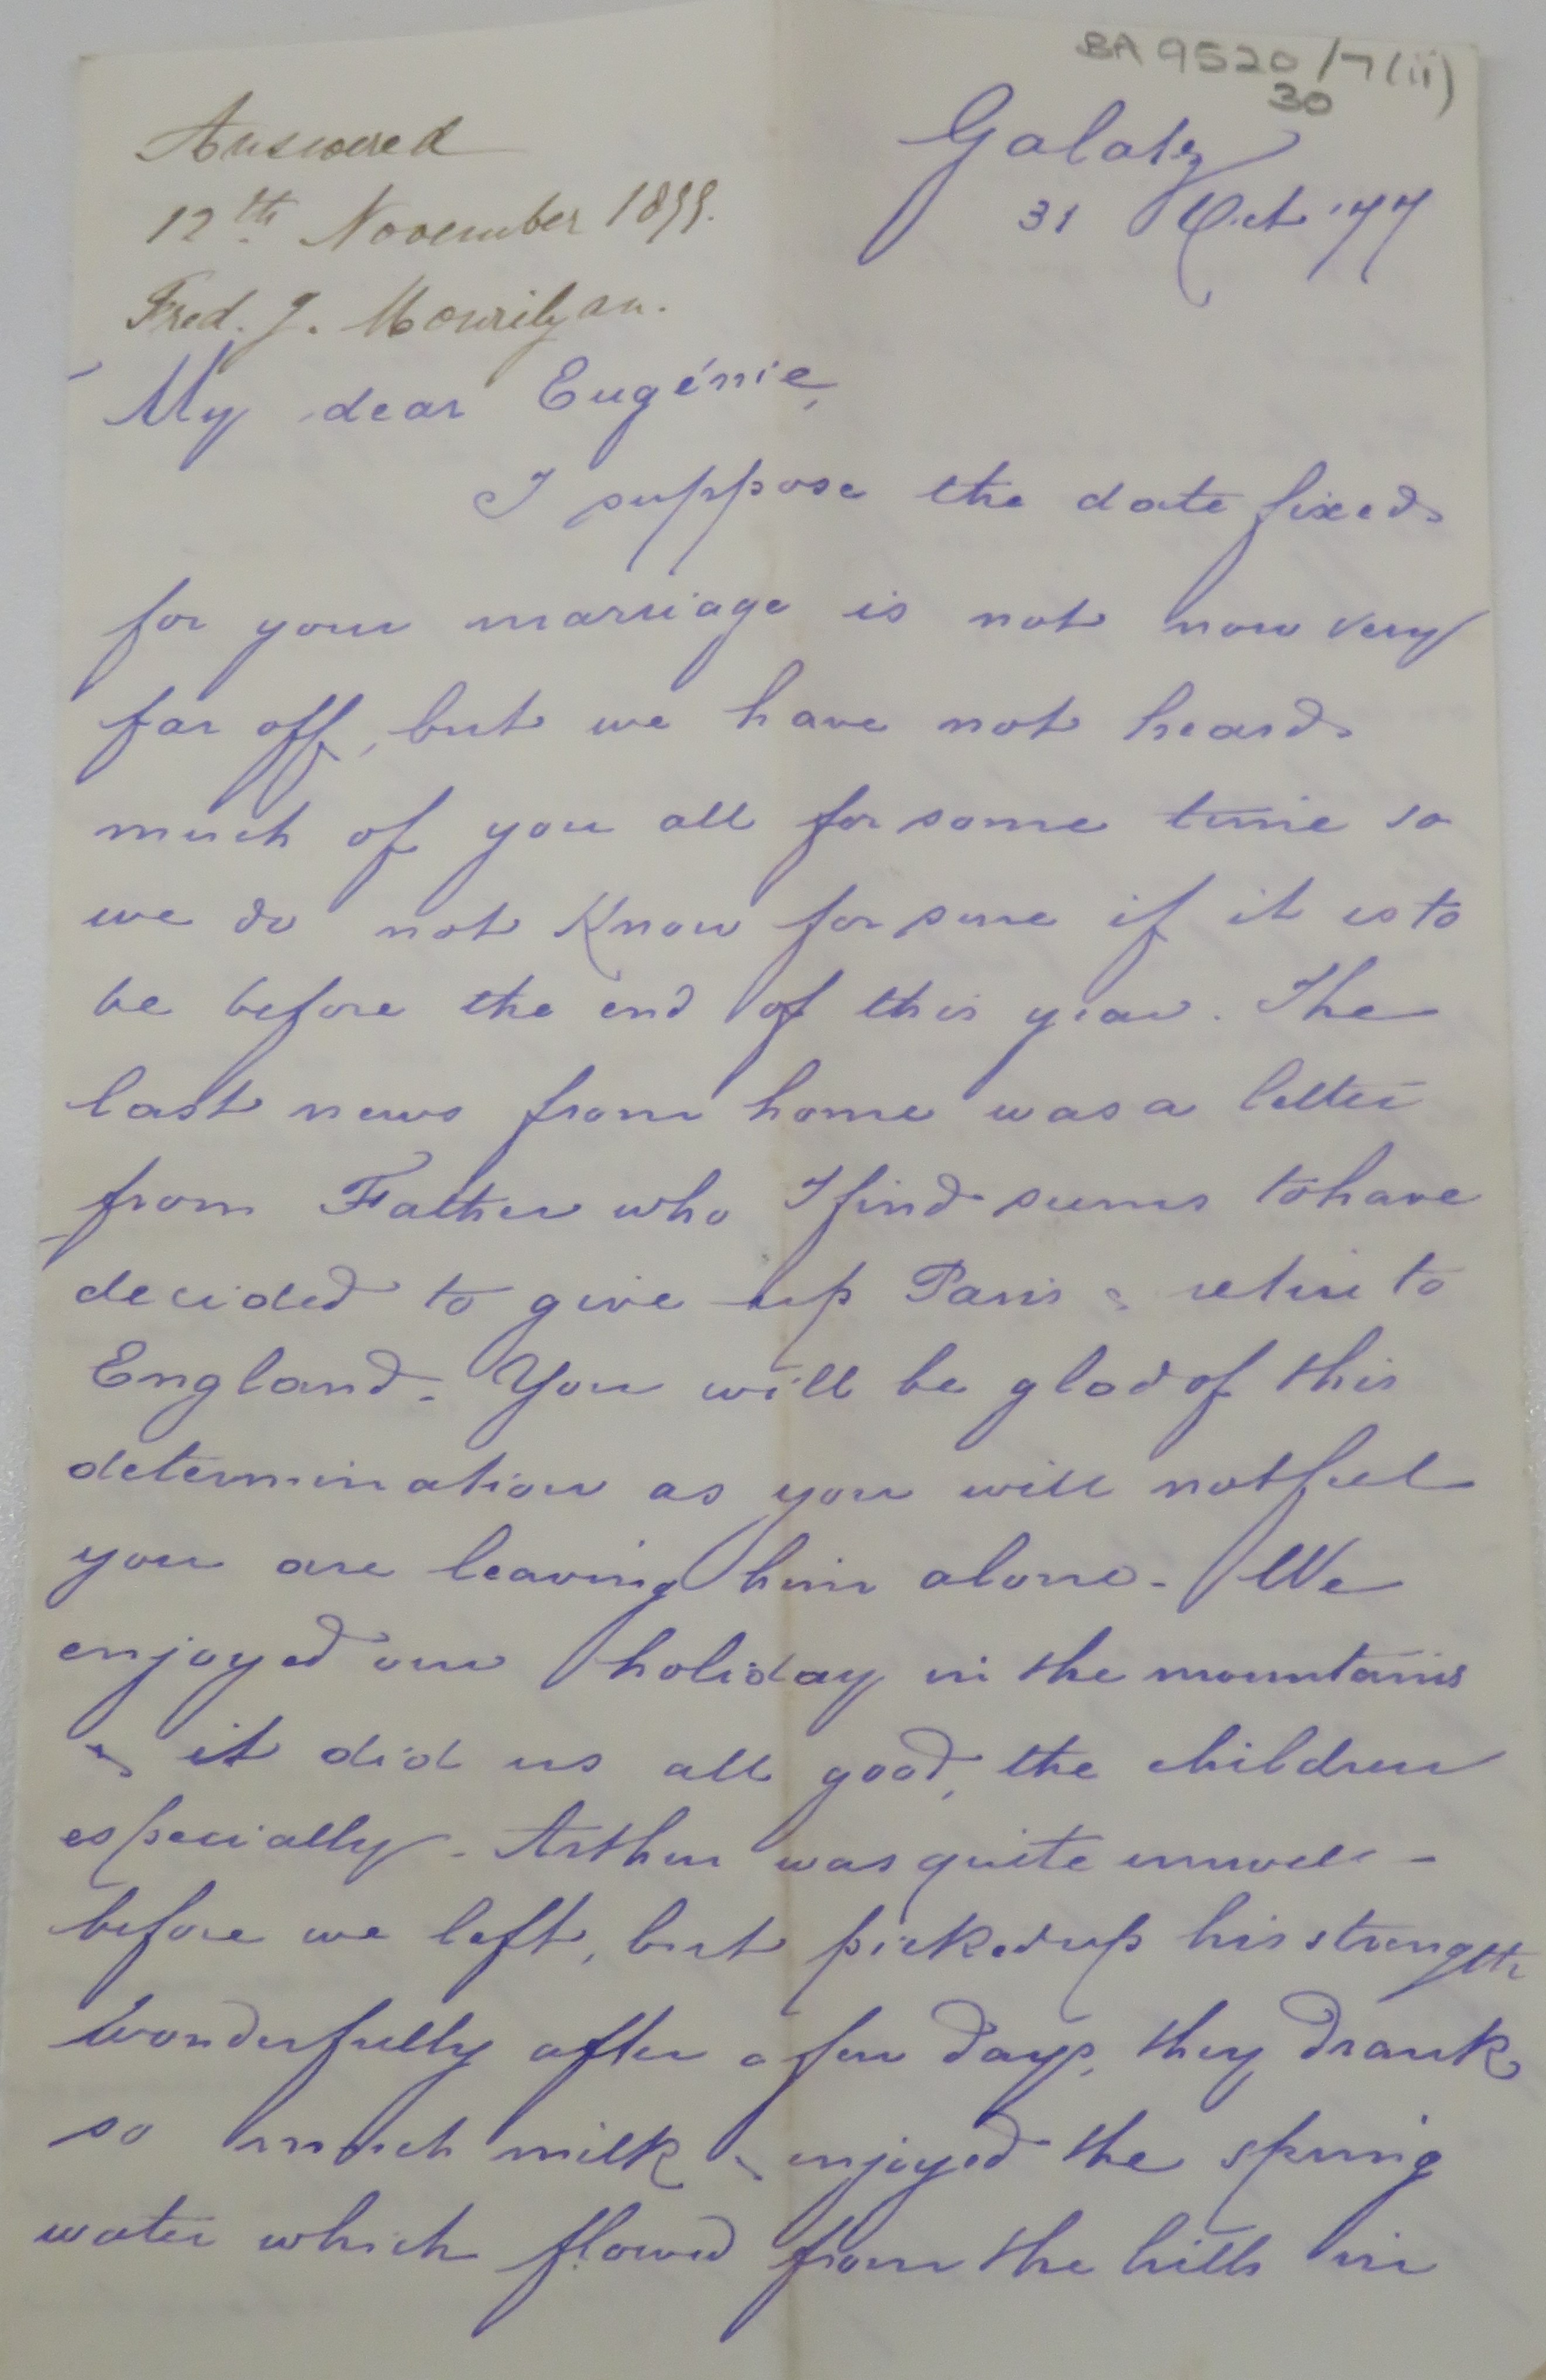 BA 9520/7(ii)
30
Answered
12th November 1877.
Fred. J. Mourilyan.
Galatz
31 Oct '77
My dear Eugénie,
I suppose the date fixed
for your marriage is not now very
far off, but we have not heard
much of you all for some time so
we do not know for sure if it is to
be before the end of this year. The
last news from home was a letter
from Father who I find seems to have
decided to give up Paris & retire to
England. You will be glad of this
determination as you will not feel
you are leaving him alone. We
enjoyed our holiday in the mountains
& it did us all good, the children
especially. Arthur was quite unwell
before we left, but picked up his strength
wonderfully after a few days, they drank
so much milk & enjoyed the spring
water which flowed from the hills in